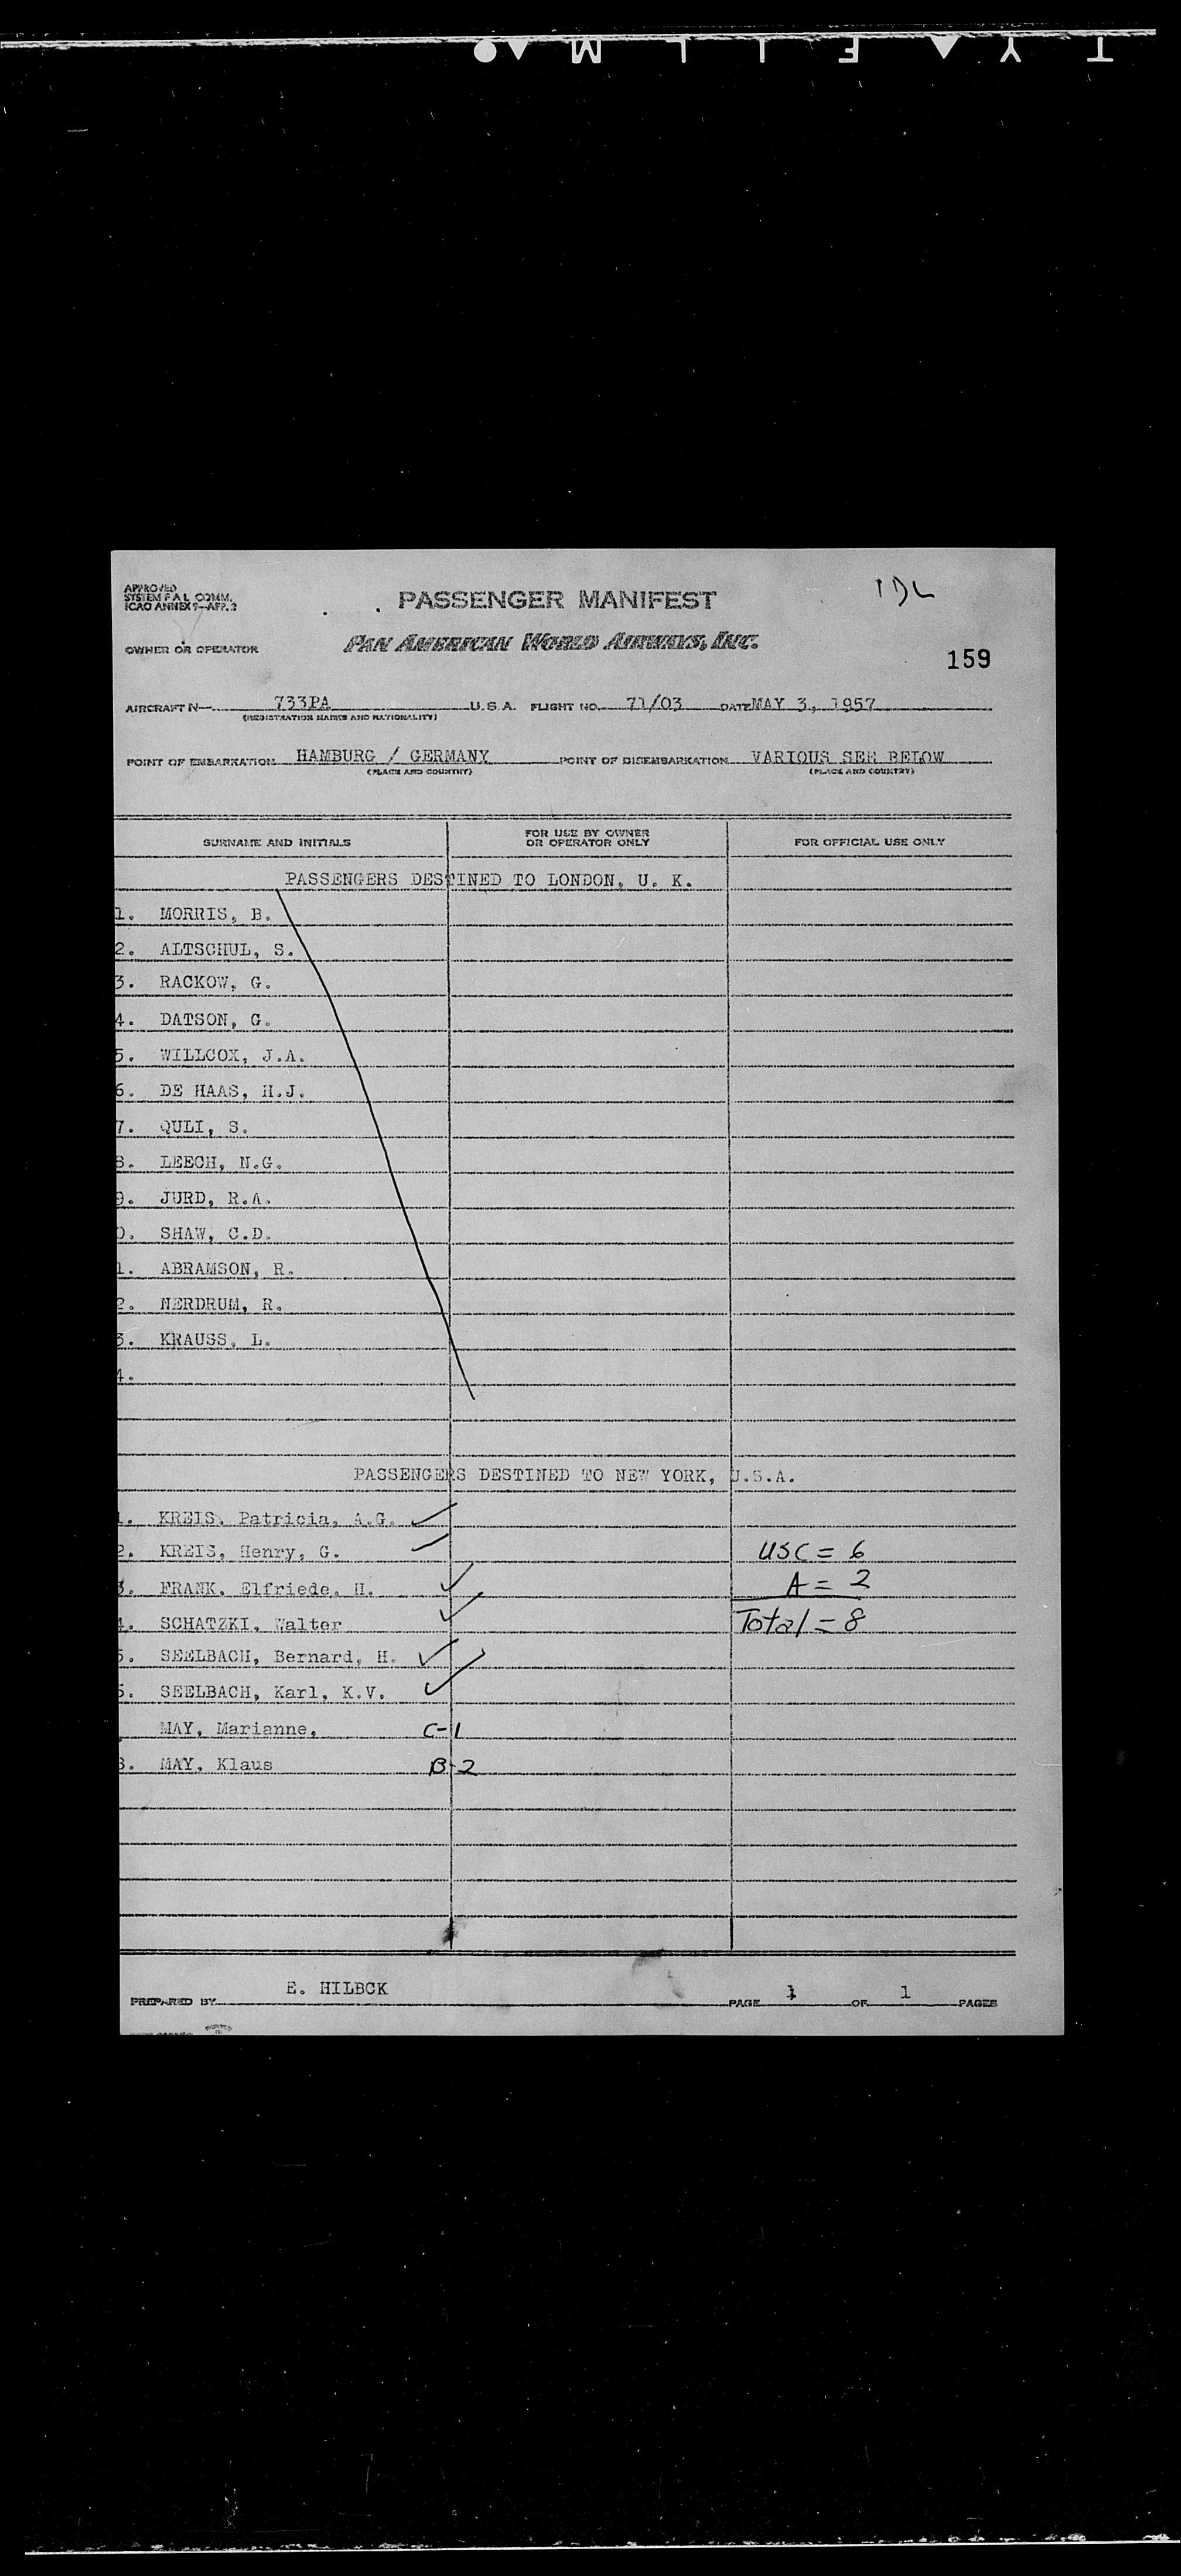 APPROVED
SYSTEM F A L COMM.
ICAO ANNEX 9—APP. 3
PASSENGER MANIFEST
OWNER OR OPERATOR PAN AMERICAN WORLD AIRWAYS, INC.
159
AIRCRAFT N— 733PA U.S.A. FLIGHT NO. 71/03 DATE MAY 3, 1957
(REGISTRATION MARKS AND NATIONALITY)
POINT OF EMBARKATION HAMBURG / GERMANY POINT OF DISEMBARKATION VARIOUS SEE BELOW
(PLACE AND COUNTRY) (PLACE AND COUNTRY)
SURNAME AND INITIALS FOR USE BY OWNER OR OPERATOR ONLY FOR OFFICIAL USE ONLY
PASSENGERS DESTINED TO LONDON, U. K.
1. MORRIS, B.
2. ALTSCHUL, S.
3. RACKOW, G.
4. DATSON, G.
5. WILLCOX, J.A.
6. DE HAAS, H.J.
7. QULI, S.
8. LEECH, N.G.
9. JURD, R.A.
0. SHAW, C.D.
1. ABRAMSON, R.
2. NERDRUM, R.
3. KRAUSS, L.
4.
PASSENGERS DESTINED TO NEW YORK, U.S.A.
1. KREIS, Patricia, A.G.
2. KREIS, Henry, G. USC = 6
3. FRANK, Elfriede, H. A = 2
4. SCHATZKI, Walter Total = 8
5. SEELBACH, Bernard, H.
6. SEELBACH, Karl, K.V.
MAY, Marianne, C-1
8. MAY, Klaus B-2
PREPARED BY E. HILBCK PAGE 1 OF 1 PAGES